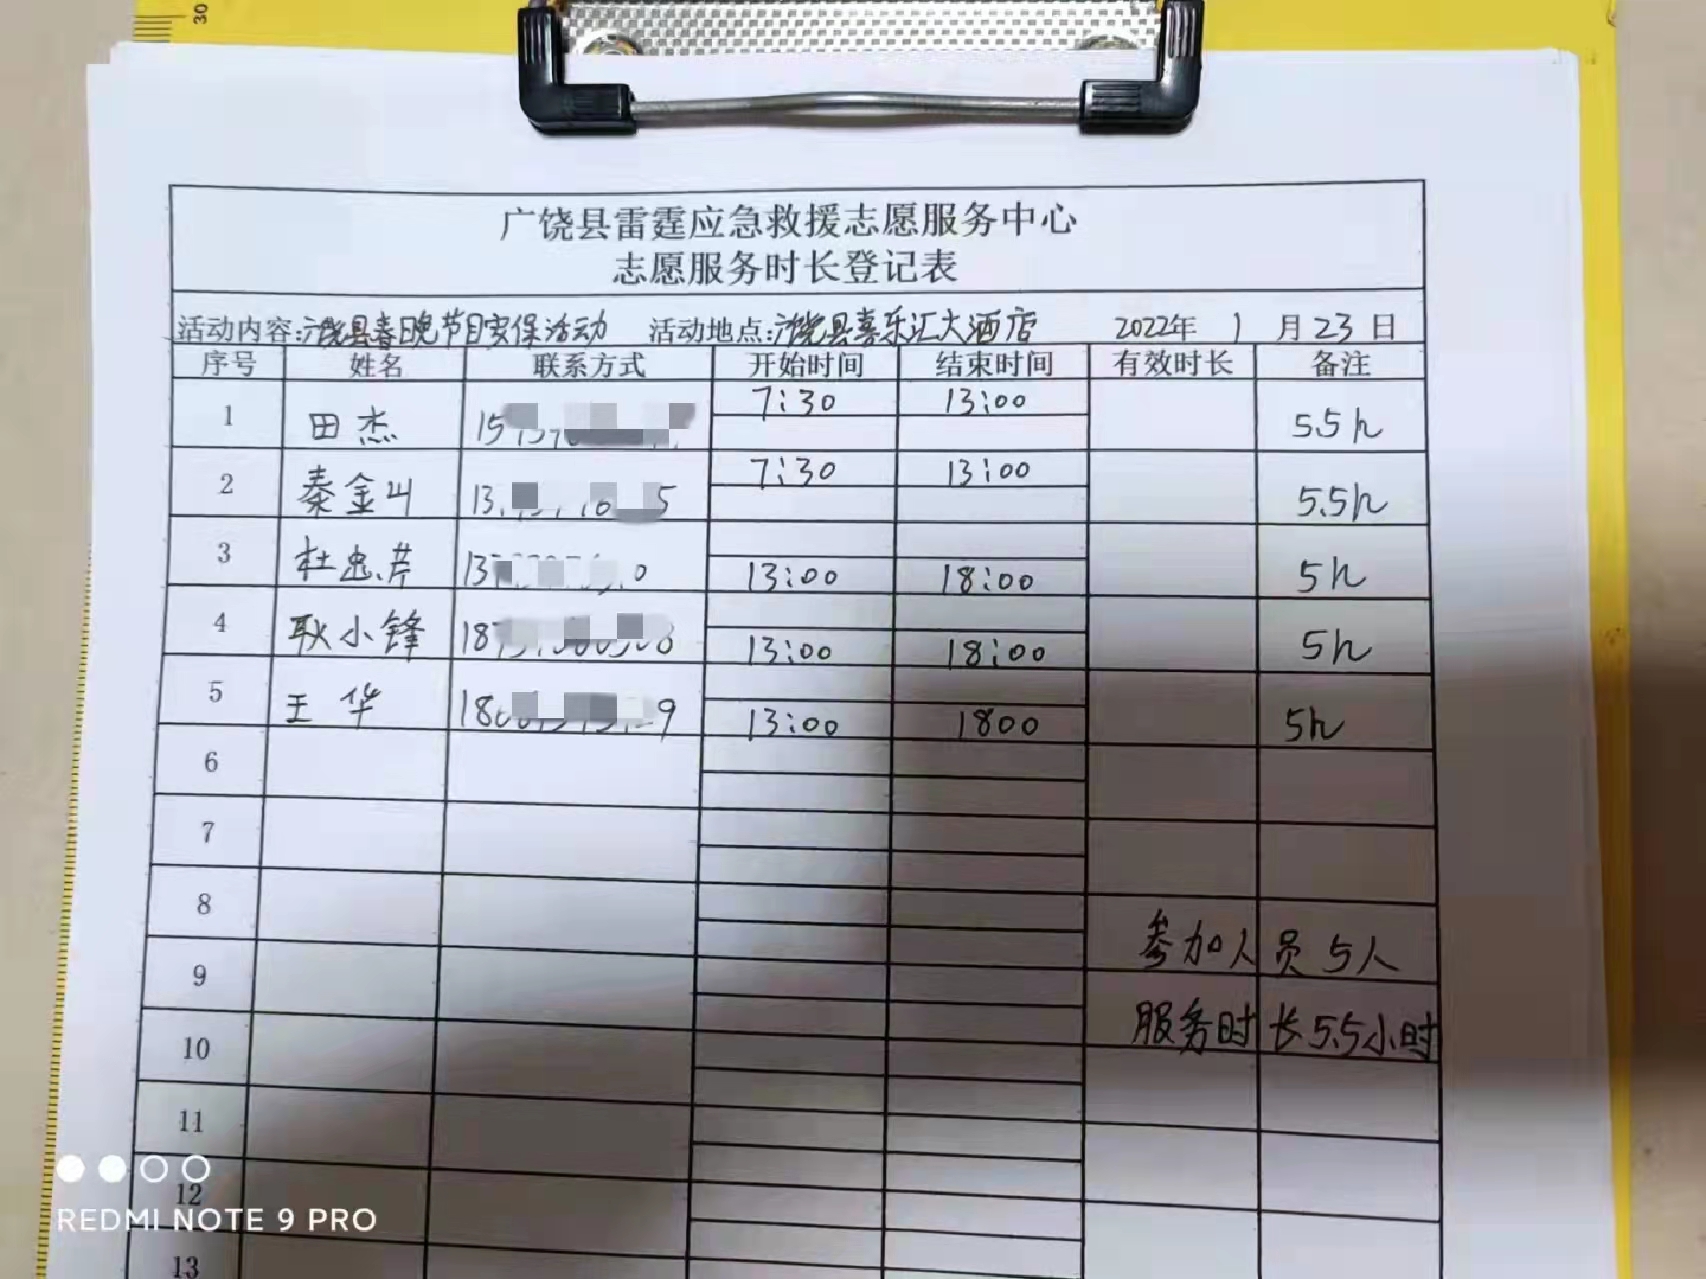 30
广饶县雷霆应急救援志愿服务中心
志愿服务时长登记表
活动内容:广饶县春晚节目安保活动 活动地点:广饶县喜乐汇大酒店 2022年 1 月 23 日
序号 姓名 联系方式 开始时间 结束时间 有效时长 备注
1 田杰 15 7:30 13:00 5.5h
2 秦金叫 13 5 7:30 13:00 5.5h
3 杜忠芹 13 0 13:00 18:00 5h
4 耿小锋 18 13:00 18:00 5h
5 王华 180 9 13:00 1800 5h
6
7
8
参加人员5人
9
服务时长5.5小时
10
11
12
13
REDMI NOTE 9 PRO